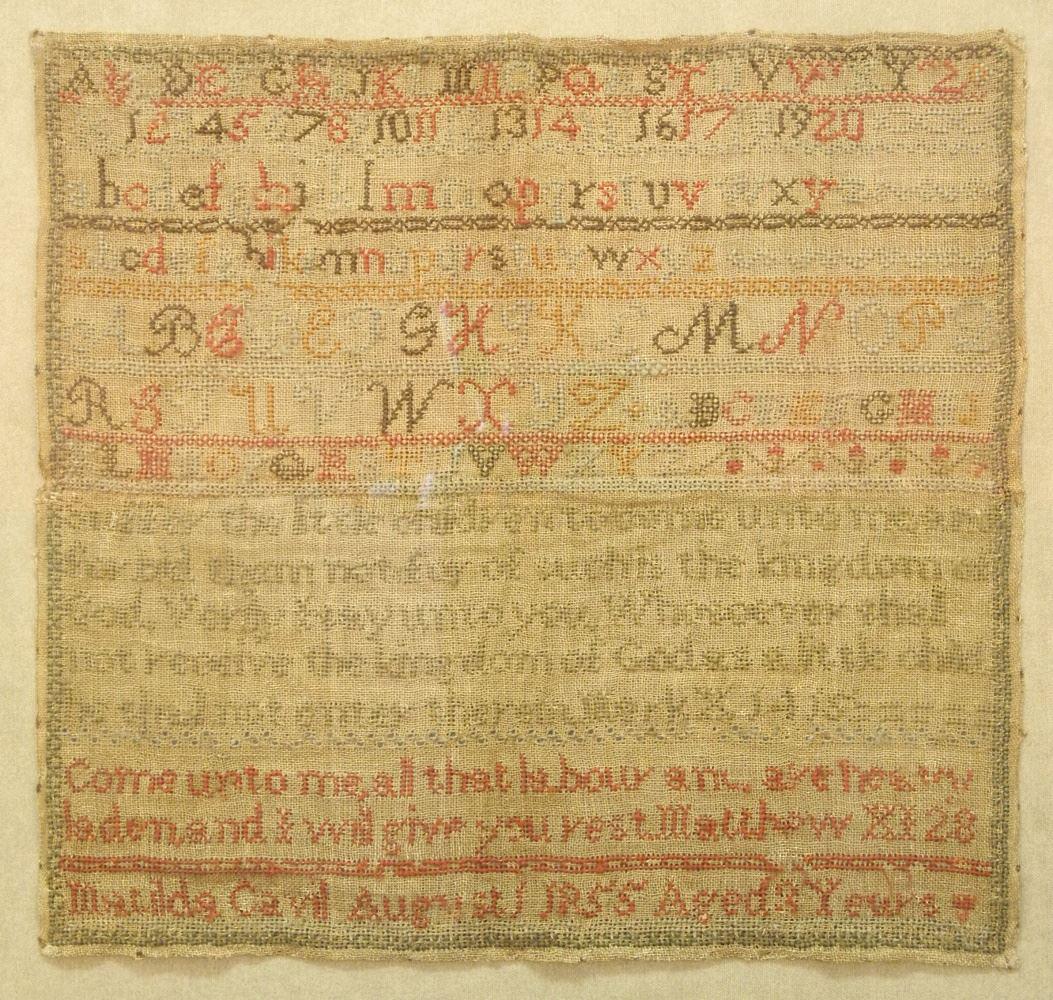 A B D E G H J K M N P Q S T V W Y Z
1 2 4 5 7 8 10 11 13 14 16 17 19 20
b c d e f h i l m o p r s u v x y
c d f h i k m n p r s u w x z
B C E G H K M N O P
R S U V W X Y Z B C E G H J
L M O Q R V W Y
Suffer the little children to come unto me and
forbid them not, for of such is the kingdom of
God. Verily I say unto you, Whosoever shall
not receive the kingdom of God as a little child
he shall not enter therein. Mark X. 14, 15
Come unto me, all that labour and are heavy
laden, and I will give you rest. Matthew XI 28
Matilda Cavil August 1 1855 Aged 8 Years